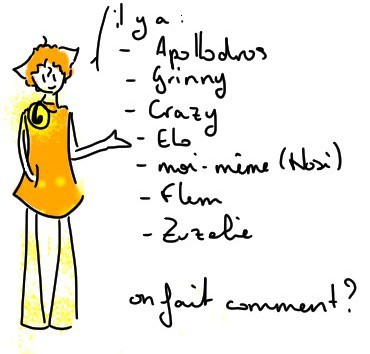 il y a :
- Apollodros
- Grinny
- Crazy
- Elo
- moi-même (Nosi)
- Flem
- Zuzelie
on fait comment ?